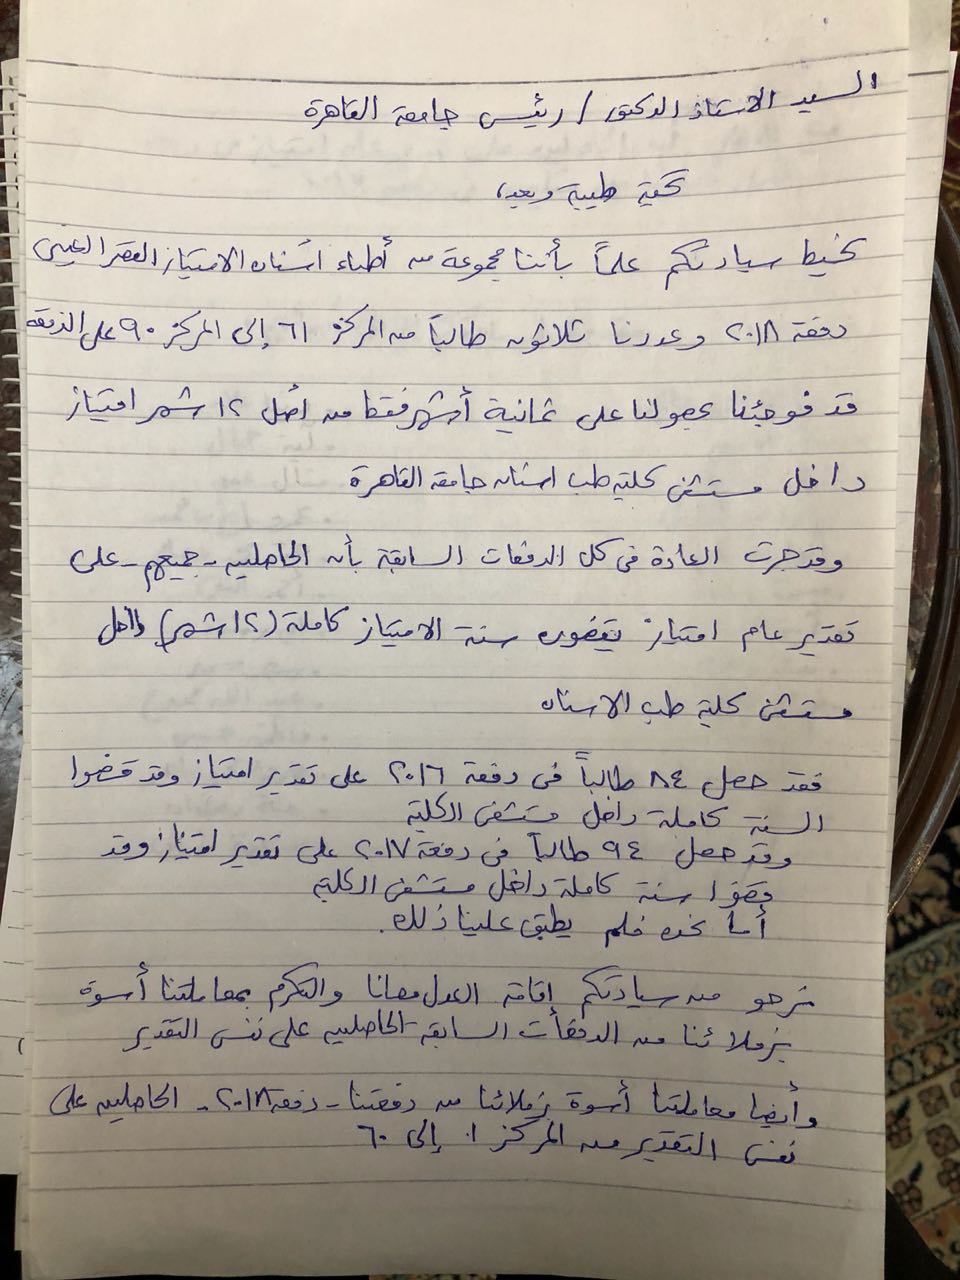 السيد الاستاذ الدكتور / رئيس جامعة القاهرة
تحية طيبة وبعد،
نحيط سيادتكم علماً بأننا مجموعة من أطباء اسنان الامتياز القصر العيني
دفعة ٢٠١٨ وعددنا ثلاثون طالباً من المركز ٦١ إلى المركز ٩٠ على الدفعة
قد فوجئنا بحصولنا على ثمانية أشهر فقط من أصل ١٢ شهر امتياز
داخل مستشفى كلية طب اسنان جامعة القاهرة
وقد جرت العادة في كل الدفعات السابقة بأن الحاصلين - جميعهم - على
تقدير عام امتياز يقضون سنة الامتياز كاملة (١٢ شهر) داخل
مستشفى كلية طب الاسنان
فقد حصل ٨٤ طالباً في دفعة ٢٠١٦ على تقدير امتياز وقد قضوا
السنة كاملة داخل مستشفى الكلية
وقد حصل ٩٤ طالباً في دفعة ٢٠١٧ على تقدير امتياز وقد
قضوا سنة كاملة داخل مستشفى الكلية
أما نحن فلم يطبق علينا ذلك.
نرجو من سيادتكم إقامة العدل معانا والتكرم بمعاملتنا أسوة
بزملائنا من الدفعات السابقة الحاصلين على نفس التقدير
وأيضا معاملتنا أسوة بزملائنا من دفعتنا - دفعة ٢٠١٨ - الحاصلين على
نفس التقدير من المركز ١ إلى ٦٠